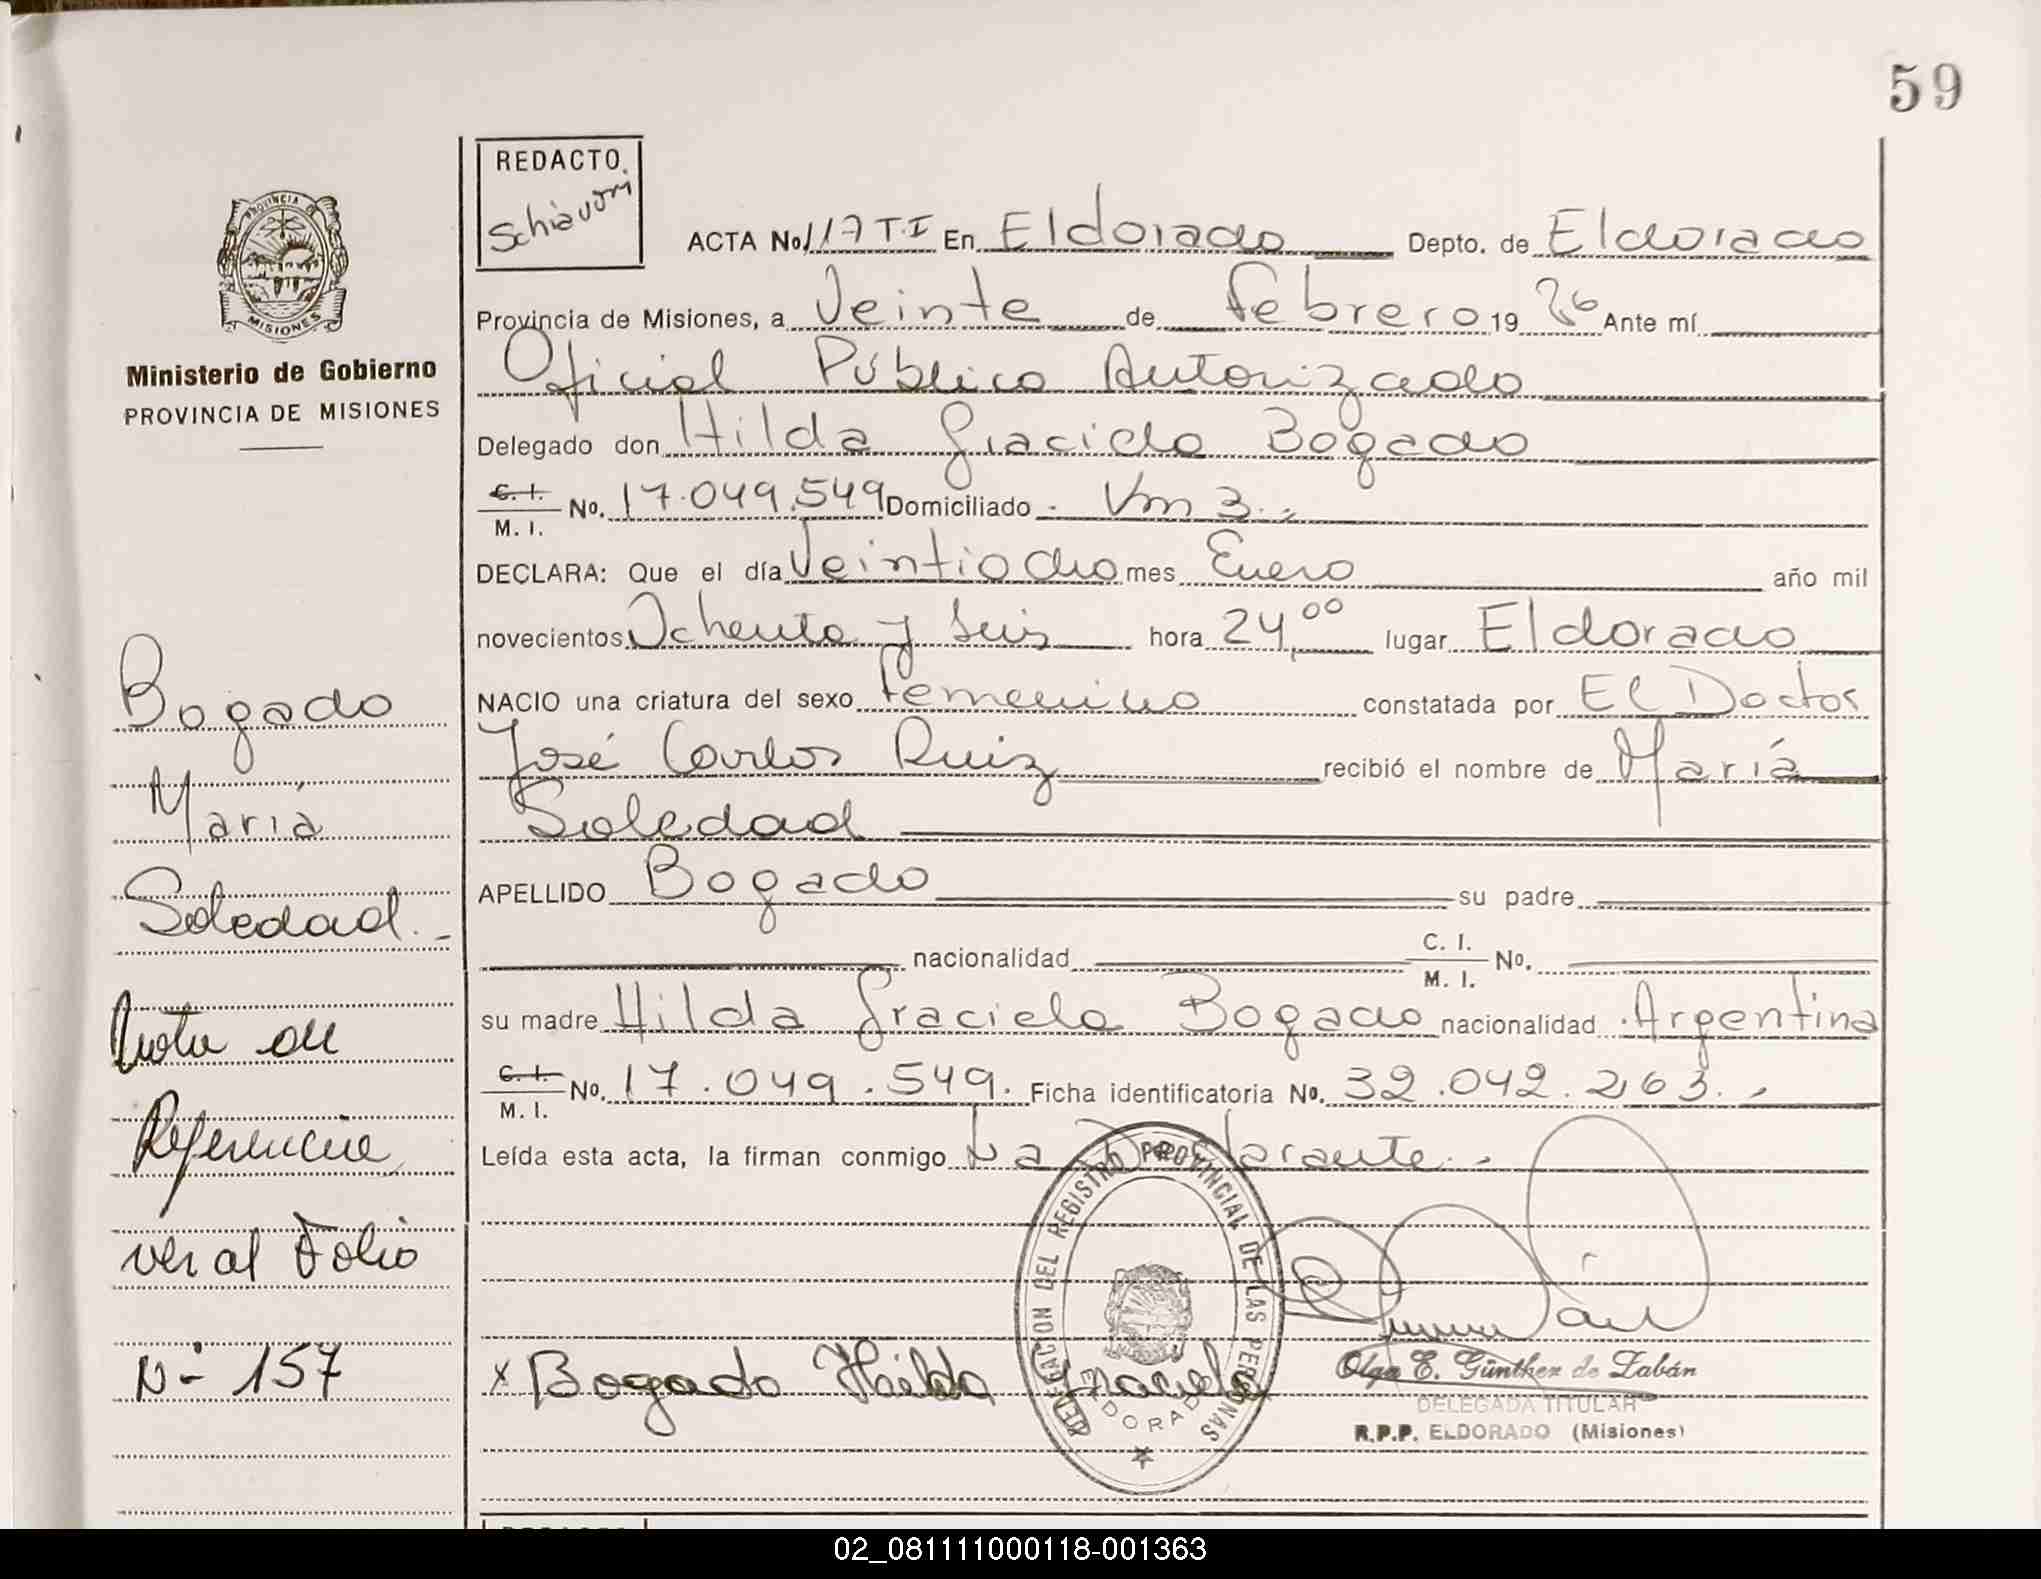 59
REDACTO.
Schiavoni
ACTA No. 117 T.I En Eldorado Depto. de Eldorado
Provincia de Misiones, a Veinte de Febrero 19 86 Ante mí
Oficial Público Autorizado
Delegado don Hilda Graciela Bogado
C. I. / M. I. No. 17.049.549 Domiciliado Km 3.-
DECLARA: Que el día Veintiocho mes Enero año mil
novecientos Ochenta y Seis hora 24,00 lugar Eldorado
NACIO una criatura del sexo Femenino constatada por El Doctor
José Carlos Ruiz recibió el nombre de María
Soledad
APELLIDO Bogado su padre
nacionalidad C. I. / M. I. No.
su madre Hilda Graciela Bogado nacionalidad Argentina
C. I. / M. I. No. 17.049.549. Ficha identificatoria No. 32.042.263.-
Leída esta acta, la firman conmigo La Declarante.-
x Bogado Hilda Graciela
DELEGACION DEL REGISTRO PROVINCIAL DE LAS PERSONAS
ELDORADO
Olga E. Günther de Zabán
DELEGADA TITULAR
R.P.P. ELDORADO (Misiones)
PROVINCIA DE
MISIONES
Ministerio de Gobierno
PROVINCIA DE MISIONES
Bogado
María
Soledad.-
Nota de
Referencia
ver al Folio
Nº 157
02_081111000118-001363